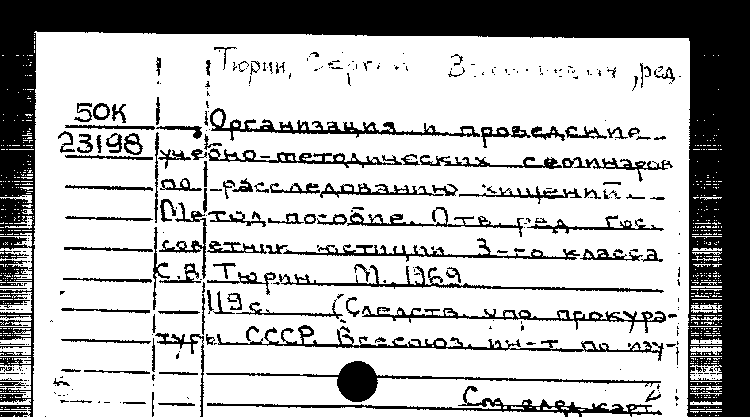 Тюрин, Сергей ,ред.
50К Организация и проведение
23198 учебно-методических семинаров
по расследованию хищений.
Метод. пособие. Отв. ред. гос.
советник юстиции 3-го класса
С.В. Тюрин. М., 1969.
119 с. (Следств. упр. прокура-
туры СССР. Всесоюз. ин-т по изу-
См. след. карт.